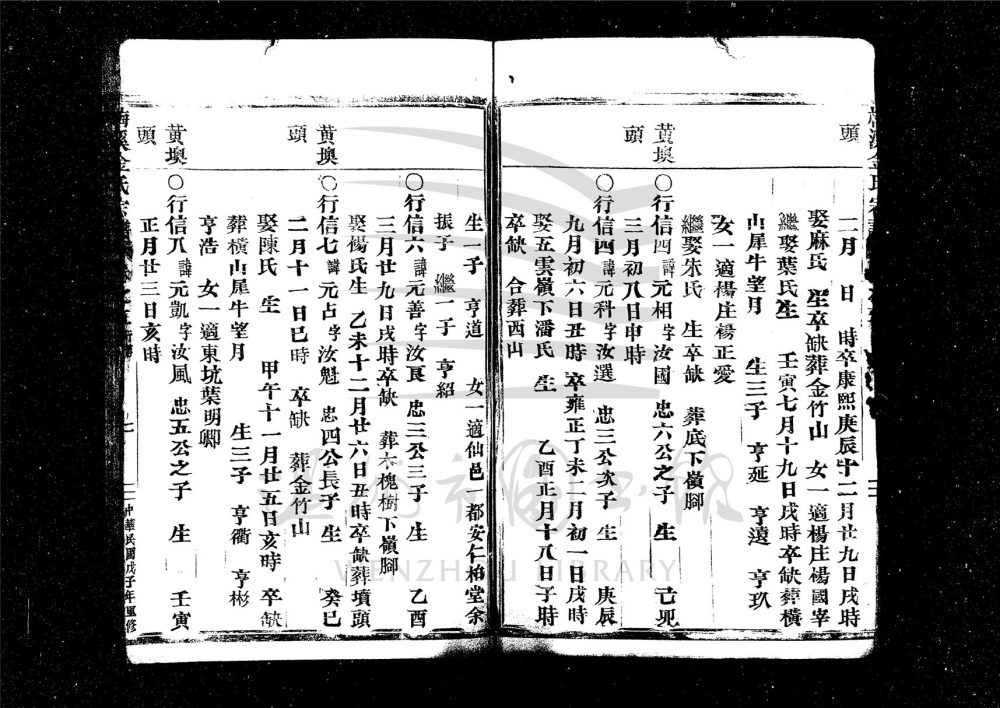 頭
二月 日 時卒康熙庚辰十二月廿九日戌時
娶麻氏 生卒缺葬金竹山 女一適楊庄楊國宰
繼娶葉氏生 壬寅七月十九日戌時卒缺葬橫
山犀牛望月 生三子 亨延 亨遠 亨玖
女一適楊庄楊正愛
繼娶朱氏 生卒缺 葬底下嶺腳
黃墺 〇行信四諱元相字汝國 忠六公之子 生 己卯
頭 三月初八日申時
〇行信四諱元科字汝選 忠三公次子 生 庚辰
九月初六日丑時 卒雍正丁未二月初一日戌時
娶五雲嶺下潘氏 生 乙酉正月十八日子時
卒缺 合葬西山
生一子 亨道 女一適仙邑 都安仁柏堂余
振子 繼一子 亨紹
〇行信六諱元善字汝良 忠三公三子 生 乙酉
三月廿九日戌時卒缺 葬木槐樹下嶺腳
娶楊氏生 乙未十二月廿六日丑時卒缺葬墳頭
黃墺 〇行信七諱元占字汝魁 忠四公長子 生 癸巳
頭 二月十一日巳時 卒缺 葬金竹山
娶陳氏 生 甲午十一月廿五日亥時 卒缺
葬橫山犀牛望月 生三子 亨衢 亨彬
亨浩 女一適東坑葉明卿
黃墺 〇行信八諱元凱字汝風 忠五公之子 生 壬寅
頭 正月廿三日亥時
金氏宗譜
中華民國戊子年重修
WENZHOU LIBRARY